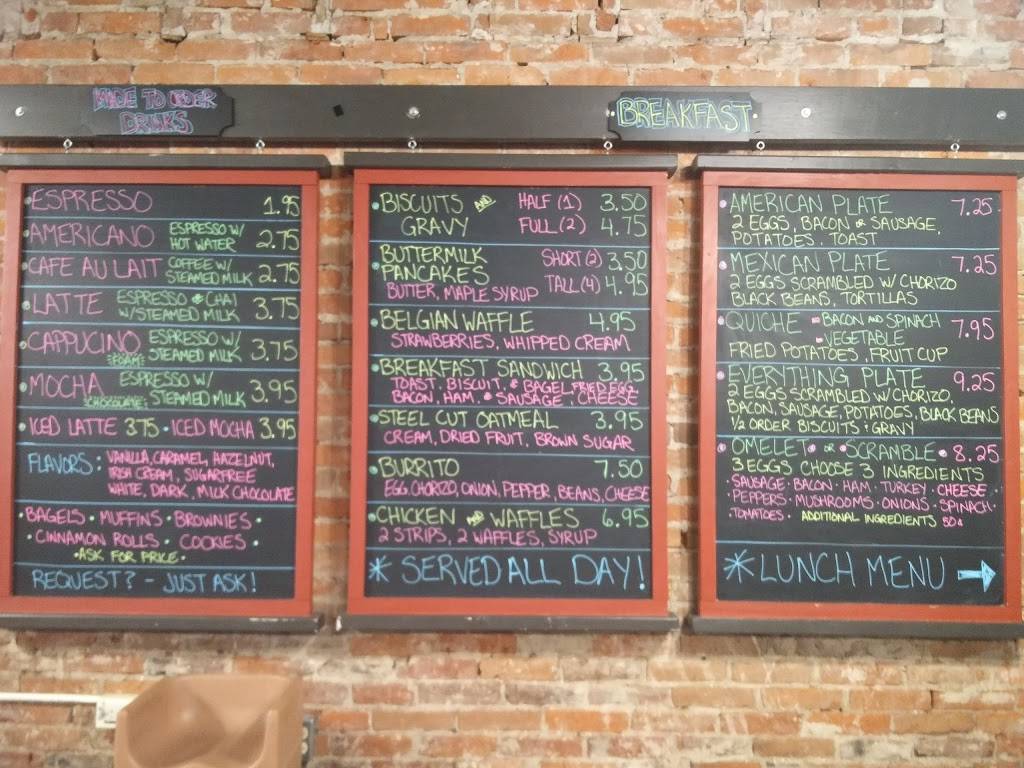 MADE TO ORDER
DRINKS
ESPRESSO 1.95
AMERICANO ESPRESSO W/ HOT WATER 2.75
CAFE AU LAIT COFFEE W/ STEAMED MILK 2.75
LATTE ESPRESSO OR CHAI W/STEAMED MILK 3.75
CAPPUCINO (FOAM) ESPRESSO W/ STEAMED MILK 3.75
MOCHA (CHOCOLATE) ESPRESSO W/ STEAMED MILK 3.95
ICED LATTE 3.75 · ICED MOCHA 3.95
FLAVORS: VANILLA, CARAMEL, HAZELNUT,
IRISH CREAM, SUGARFREE
WHITE, DARK, MILK CHOCOLATE
· BAGELS · MUFFINS · BROWNIES ·
· CINNAMON ROLLS · COOKIES ·
· ASK FOR PRICE ·
REQUEST? - JUST ASK!
BREAKFAST
• BISCUITS AND HALF (1) 3.50
GRAVY FULL (2) 4.75
• BUTTERMILK SHORT (2) 3.50
PANCAKES TALL (4) 4.95
BUTTER, MAPLE SYRUP
• BELGIAN WAFFLE 4.95
STRAWBERRIES, WHIPPED CREAM
• BREAKFAST SANDWICH 3.95
TOAST, BISCUIT, OR BAGEL, FRIED EGG
BACON, HAM, OR SAUSAGE, CHEESE
• STEEL CUT OATMEAL 3.95
CREAM, DRIED FRUIT, BROWN SUGAR
• BURRITO 7.50
EGG, CHORIZO, ONION, PEPPER, BEANS, CHEESE
• CHICKEN AND WAFFLES 6.95
2 STRIPS, 2 WAFFLES, SYRUP
* SERVED ALL DAY!
• AMERICAN PLATE 7.25
2 EGGS, BACON OR SAUSAGE,
POTATOES, TOAST
• MEXICAN PLATE 7.25
2 EGGS SCRAMBLED W/ CHORIZO
BLACK BEANS, TORTILLAS
• QUICHE - BACON AND SPINACH 7.95
- VEGETABLE
FRIED POTATOES, FRUIT CUP
• EVERYTHING PLATE 9.25
2 EGGS SCRAMBLED W/ CHORIZO,
BACON, SAUSAGE, POTATOES, BLACK BEANS
1/2 ORDER BISCUITS + GRAVY
• OMELET • OR • SCRAMBLE • 8.25
3 EGGS CHOOSE 3 INGREDIENTS
· SAUSAGE · BACON · HAM · TURKEY · CHEESE ·
· PEPPERS · MUSHROOMS · ONIONS · SPINACH ·
· TOMATOES · ADDITIONAL INGREDIENTS 50¢
* LUNCH MENU →